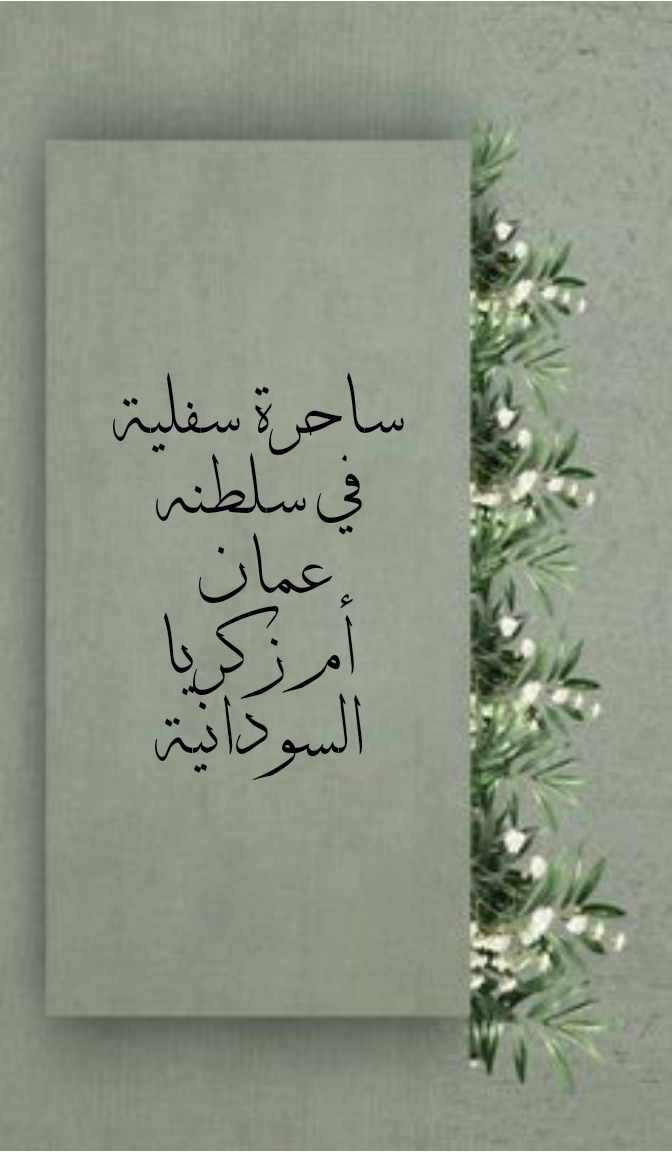 ساحرة سفلية
في سلطنه
عمان
أم زكريا
السودانية